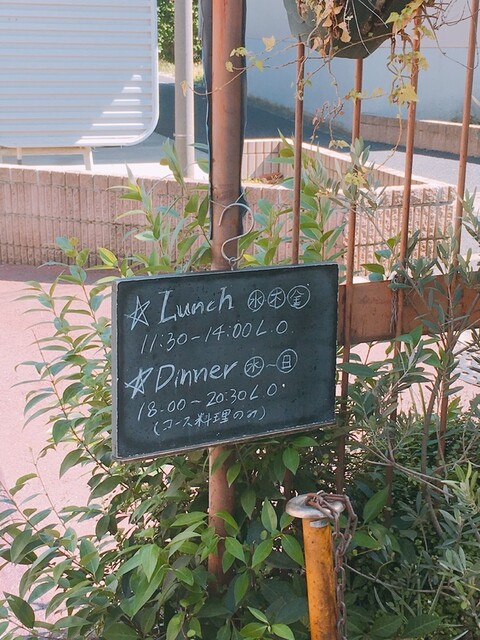 ☆Lunch ㊌㊍㊎
11:30-14:00 L.O.
☆Dinner ㊌~㊐
18:00~20:30 L.O.
(コース料理のみ)